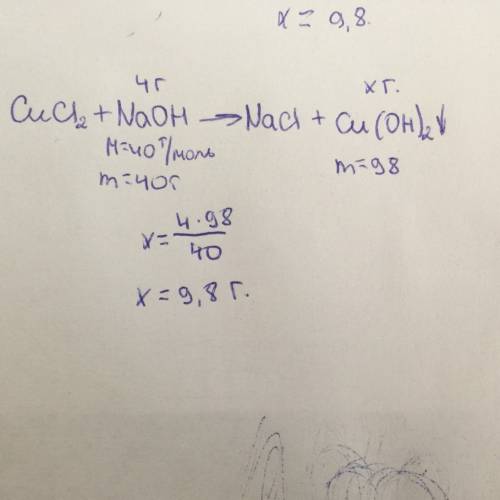 x = 9,8.
4г xг.
CuCl₂ + NaOH → NaCl + Cu(OH)₂↓
M=40 г/моль m=98
m=40г
x = 4·98/40
x = 9,8 г.